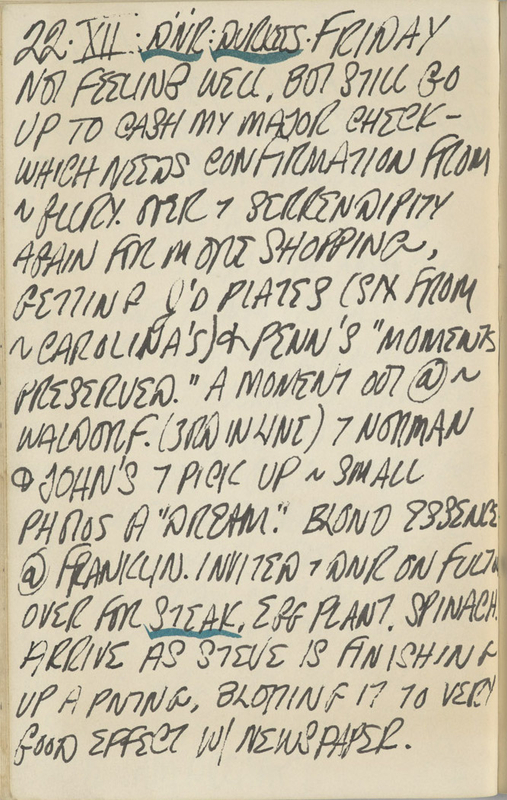 22·XII: DNR: DURKEES·FRIDAY
NOT FEELING WELL, BOT STILL GO
UP TO CASH MY MAJOR CHECK–
WHICH NEEDS CONFIRMATION FROM
~ JURY. OVER 7 SERRENDIPITY
AGAIN FOR MORE SHOPPING,
GETTING J'D PLATES (SIX FROM
~ CAROLINA'S) & PENN'S "MOMENTS
PRESERVED." A MOMENT OOT @ ~
WALDORF. (3RD IN LINE) 7 NORMAN
& JOHN'S 7 PICK UP ~ SMALL
PHOTOS A "DREAM." BLOND ESSENCE
@ FRANKLIN. INVITED 7 DNR ON FULTN
OVER FOR STEAK, EGG PLANT, SPINACH.
ARRIVE AS STEVE IS FINISHING
UP A PNTNG, BLOTTING IT TO VERY
GOOD EFFECT W/ NEWSPAPER.